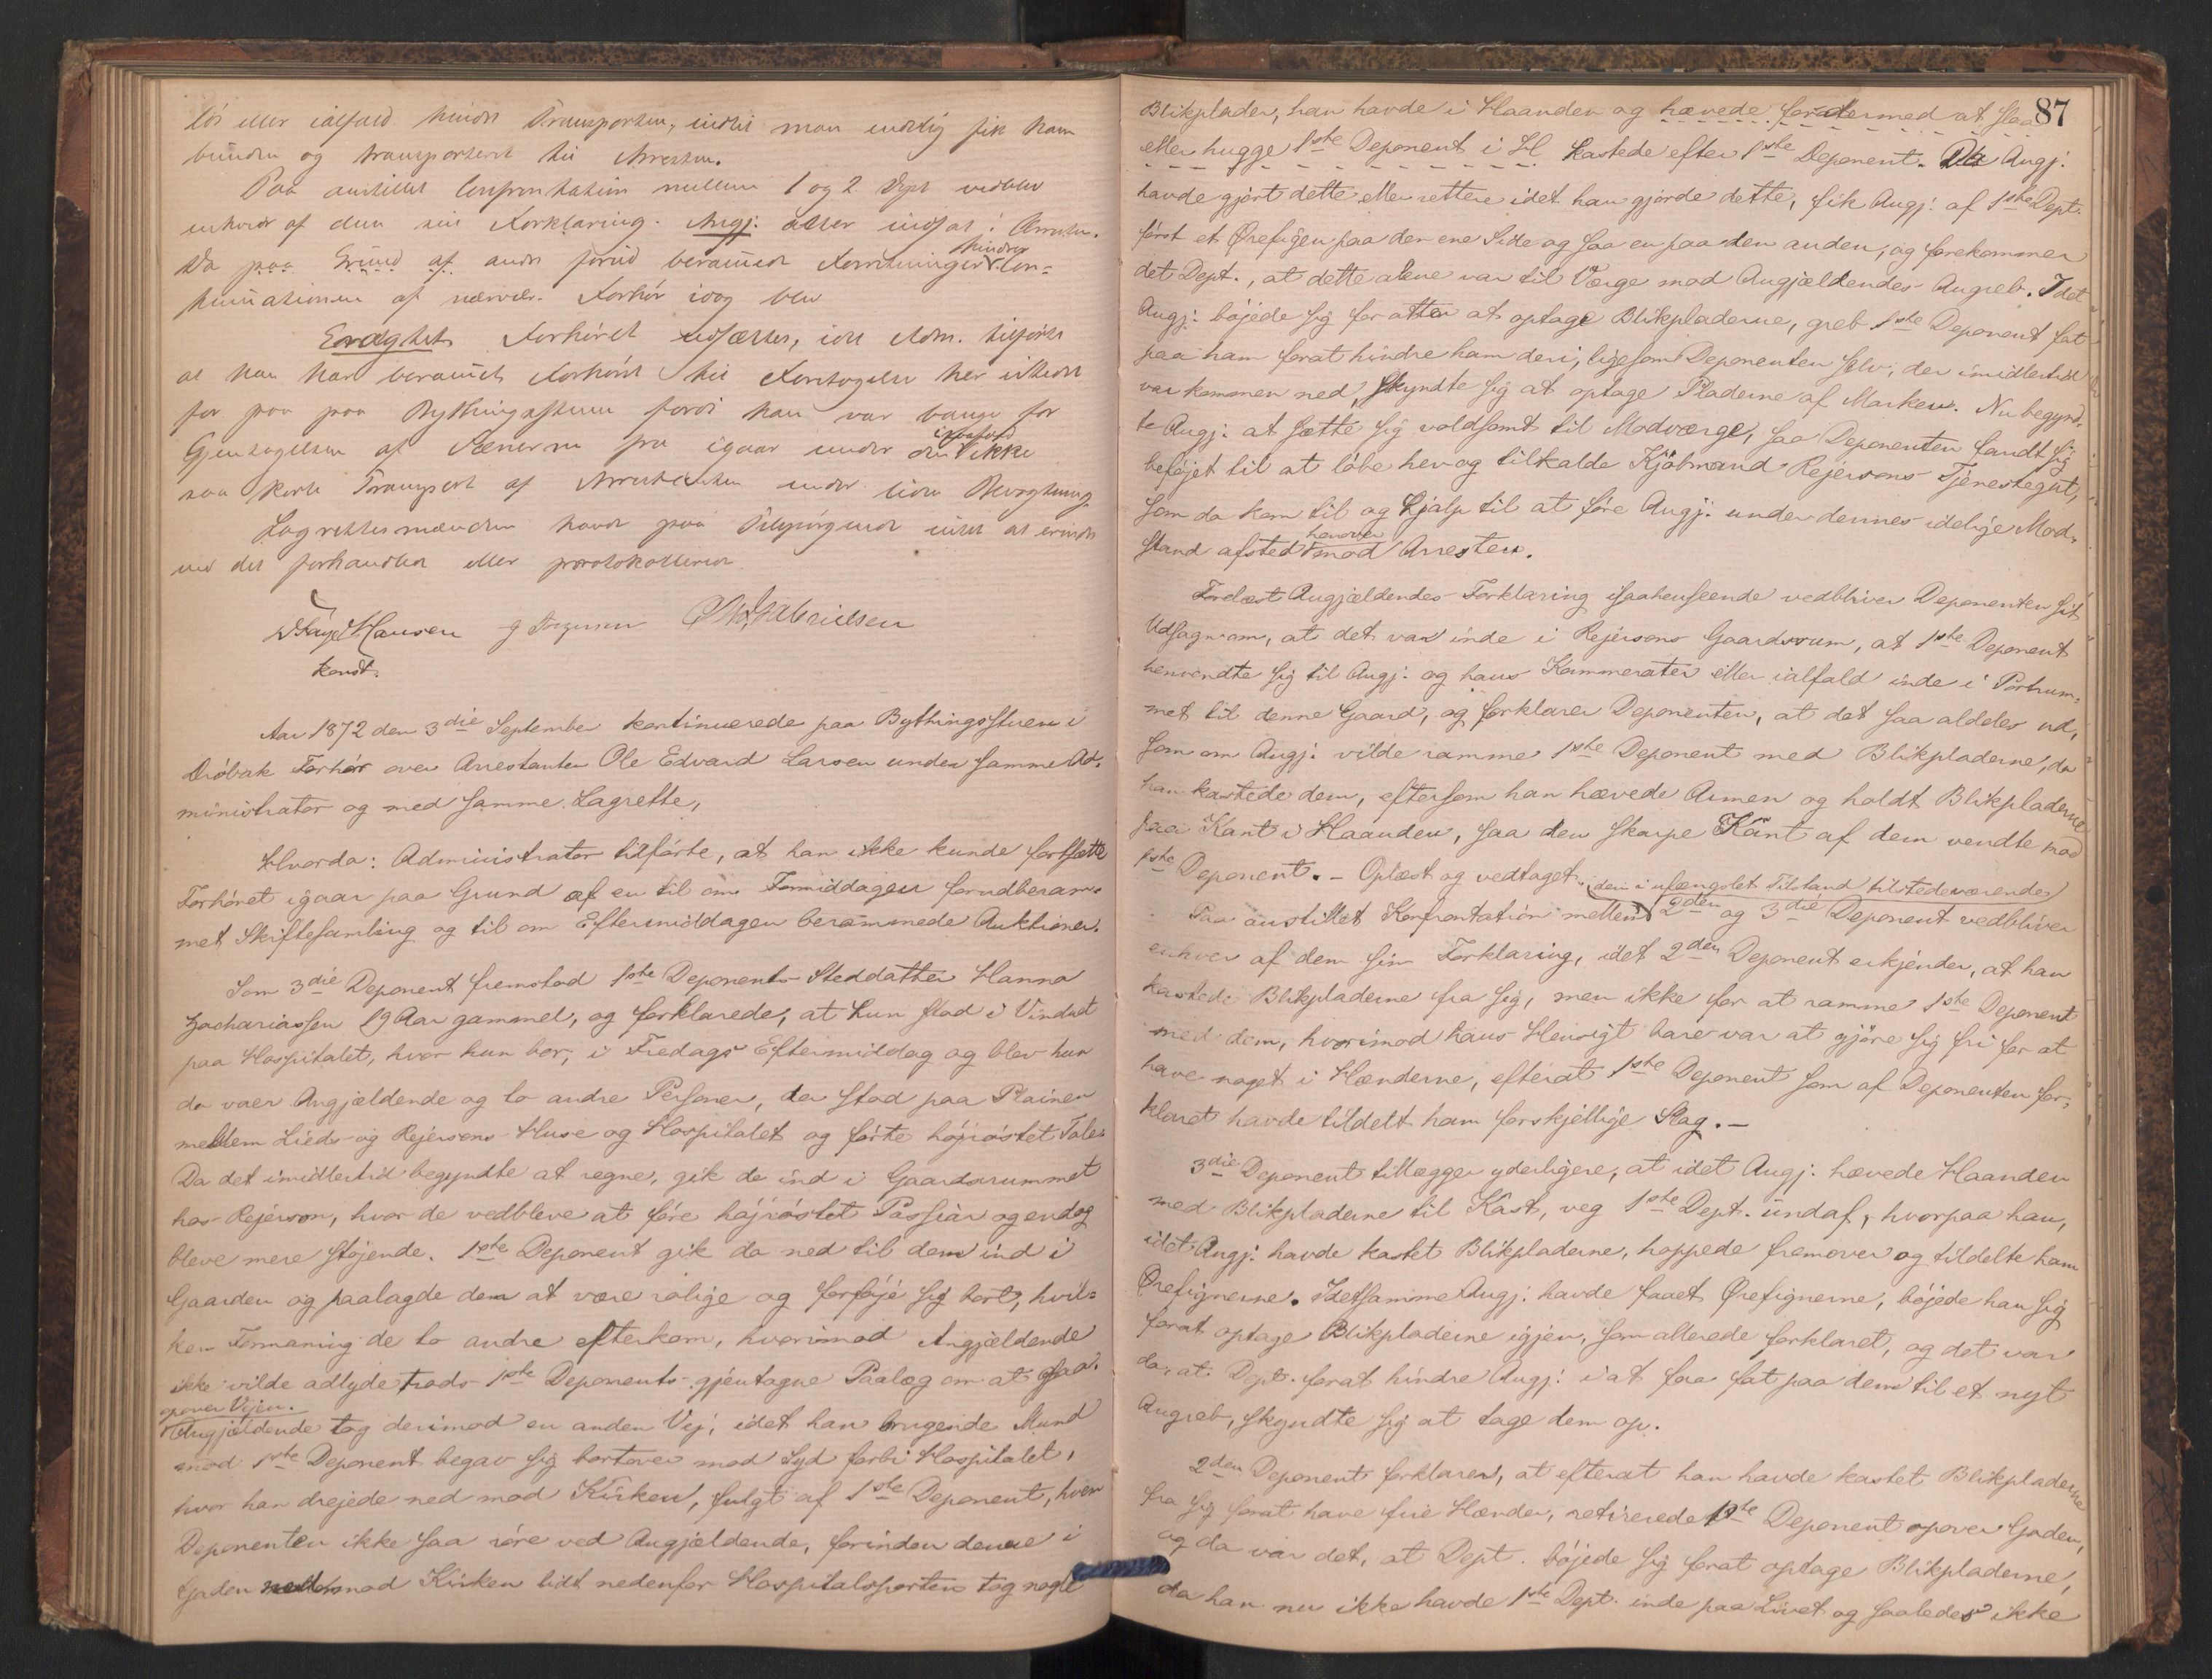 lös eller ialfald hindre Transporten, indtil man endelig fik ham
bunden og transporteret til Arresten.
Paa anstillet Confrontation mellem 1 og 2 Dept vedblev
enhver af dem sin Forklaring. Angj. atter indsat i Arresten.
Da paa Grund af andre forud berammede Forretninger hindres Con-
tinuationen af nærvær. Forhör idag blev
Eragtet Forhöret udsættes, idet Adm. tilförte
at han har berammet Forhöret til Foretagelse her istedet
for paa Bythingsstuen fordi han var bange for
Gjentagelsen af Scenerne fra igaar under den ikke
saa korte Transport af Arrestanten under liden Bevogtning.
Lagrettesmændene havde paa Tilspörgende intet at erindre
ved det forhandlede eller protokollerede
Hansen Gabrielsen
konst.
Aar 1872 den 3die September kontinuerede paa Bythingsstuen i
Dröbak Forhör over Arrestanten Ole Edvard Larsen under samme Ad-
ministrator og med samme Lagrette,
Hvorda: Administrator tilförte, at han ikke kunde fortsætte
Forhöret igaar paa Grund af en til om Formiddagen forudberam-
met Skiftesamling og til om Eftermiddagen berammede Auktioner.
Som 3die Deponent fremstod 1ste Deponents Steddatter Hanna
Zachariassen 19 Aar gammel, og forklarede, at hun stod i Vinduet
paa Hospitalet, hvor hun bor, i Fredags Eftermiddag og blev hun
da vaer Angjældende og to andre Personer, der stod paa Plainen
mellem Lieds og Rejersens Huse og Hospitalet og förte höjröstet Tale.
Da det imidlertid begyndte at regne, gik de ind i Gaardsrummet
hos Rejerson, hvor de vedbleve at före höjröstet Passiar og endog
bleve mere stöjende. 1ste Deponent gik da ned til dem ind i
Gaarden og paalagde dem at være rolige og forföje sig bort, hvil-
ken Formaning de to andre efterkom, hvorimod Angjældende
ikke vilde adlyde trods 1ste Deponents gjentagne Paalæg om at gaa
opover Vejen.
Angjældende tog derimod en anden Vej, idet han brugende Mund
mod 1ste Deponent begav sig bortover mod Syd forbi Hospitalet,
hvor han drejede ned mod Kirken, fulgt af 1ste Deponent, hvem
Deponenten ikke saa röre ved Angjældende, forinden denne i
Gaden mod Kirken lidt nedenfor Hospitalsporten tog nogle
87
Blikplader, han havde i Haanden og hævede for dermed at slaa
eller hugge 1ste Deponent i H. kastede efter 1ste Deponent. Da Angj.
havde gjort dette eller rettere idet han gjorde dette, fik Angj. af 1ste Dept.
först et Örefigen paa den ene Side og saa en paa den anden, og forekommer
det Dept., at dette alene var til Værge mod Angjældendes Angreb. Idet
Angj. böjede sig for atter at optage Blikpladerne, greb 1ste Deponent fat
paa ham forat hindre ham deri, ligesom Deponenten selv, der imidlertid
var kommen ned, skyndte sig at optage Pladerne af Marken. Nu begynd-
te Angj. at sætte sig voldsomt til Modværge, saa Deponenten fandt sig
beföjet til at löbe hen og tilkalde Kjöbmand Rejersons Tjenestegut,
som da kom til og hjalp til at före Angj. under dennes idelige Mod-
stand afsted henover mod Arresten.
Forelæst Angjældendes Forklaring isaahenseende vedbliver Deponenten sit
Udsagn om, at det var inde i Rejersons Gaardsrum, at 1ste Deponent
henvendte sig til Angj. og hans Kammerater eller ialfald inde i Portrum-
met til denne Gaard, og forklarer Deponenten, at det saa aldeles ud,
som om Angj. vilde ramme 1ste Deponent med Blikpladerne, da
han kastede dem, eftersom han hævede Armen og holdt Blikpladerne
paa Kant i Haanden, saa den skarpe Kant af dem vendte mod
1ste Deponent. – Oplæst og vedtaget. (den i ufængslet Tilstand tilstedeværende)
Paa anstillet Konfrontation mellem 2den og 3die Deponent vedbliver
enhver af dem sin Forklaring, idet 2den Deponent erkjender, at han
kastede Blikpladerne fra sig, men ikke for at ramme 1ste Deponent
med dem, hvorimod hans Hensigt bare var at gjöre sig fri for at
have noget i Hænderne, efterat 1ste Deponent som af Deponenten for-
klaret havde tildelt ham forskjellige Slag. –
3die Deponent tillægger yderligere, at idet Angj. hævede Haanden
med Blikpladerne til Kast, veg 1ste Dept. undaf, hvorpaa han,
idet Angj. havde kastet Blikpladerne, hoppede fremover og tildelte ham
Örefignerne. Idetsamme Angj. havde faaet Örefignerne, böjede han sig
forat optage Blikpladerne igjen, som allerede forklaret, og det var
da, at Dept. forat hindre Angj. i at faa fat paa dem til et nyt
Angreb, skyndte sig at tage dem op.
2den Deponent forklarer, at efterat han havde kastet Blikpladerne
fra sig forat have frie Hænder, retirerede 1ste Deponent opover Gaden,
og da var det, at Dept. böjede sig forat optage Blikpladerne,
da han nu ikke havde 1ste Dept. inde paa Livet og saaledes ikke